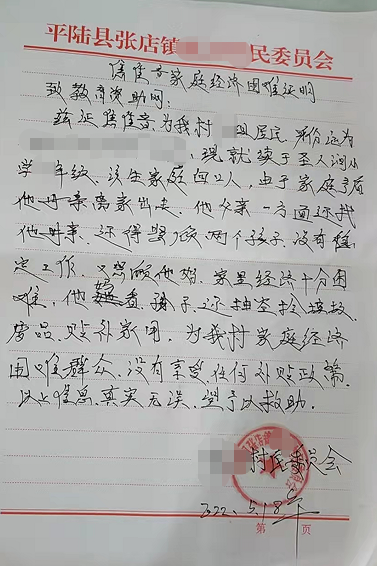 平陆县张店镇 民委员会
焦隹音家庭经济困难证明
致教育资助网:
兹证焦隹音为我村 组居民,身份证为
,现就读于圣人涧小
学 年级,该生家庭四口人,由于家庭
他母亲离家出走,他父亲一方面还找
他母亲,还得照顾两个孩子,没有稳
定工作,又想顾他妈,家里经济十分困
难,他 孩子还抽空捡垃圾
废品,贴补家用,为我村家庭经济
困难群众,没有享受任何补贴政策,
以上信息真实无误,望予以救助.
村民委员会
2022.5.18年
第 页